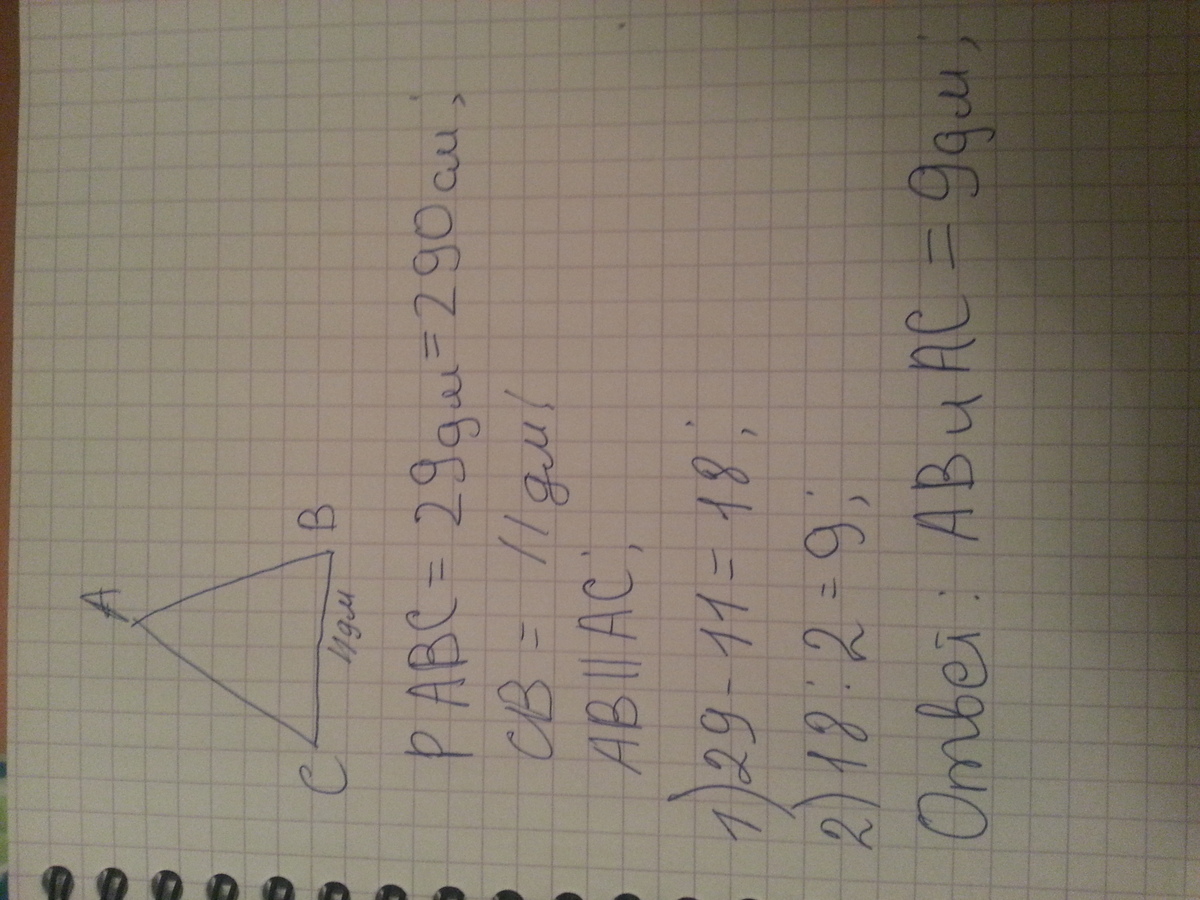 A
C
B
11дм
P ABC = 29дм = 290см;
CB = 11дм;
AB || AC;
1) 29 - 11 = 18;
2) 18 : 2 = 9;
Ответ: AB и AC = 9дм;